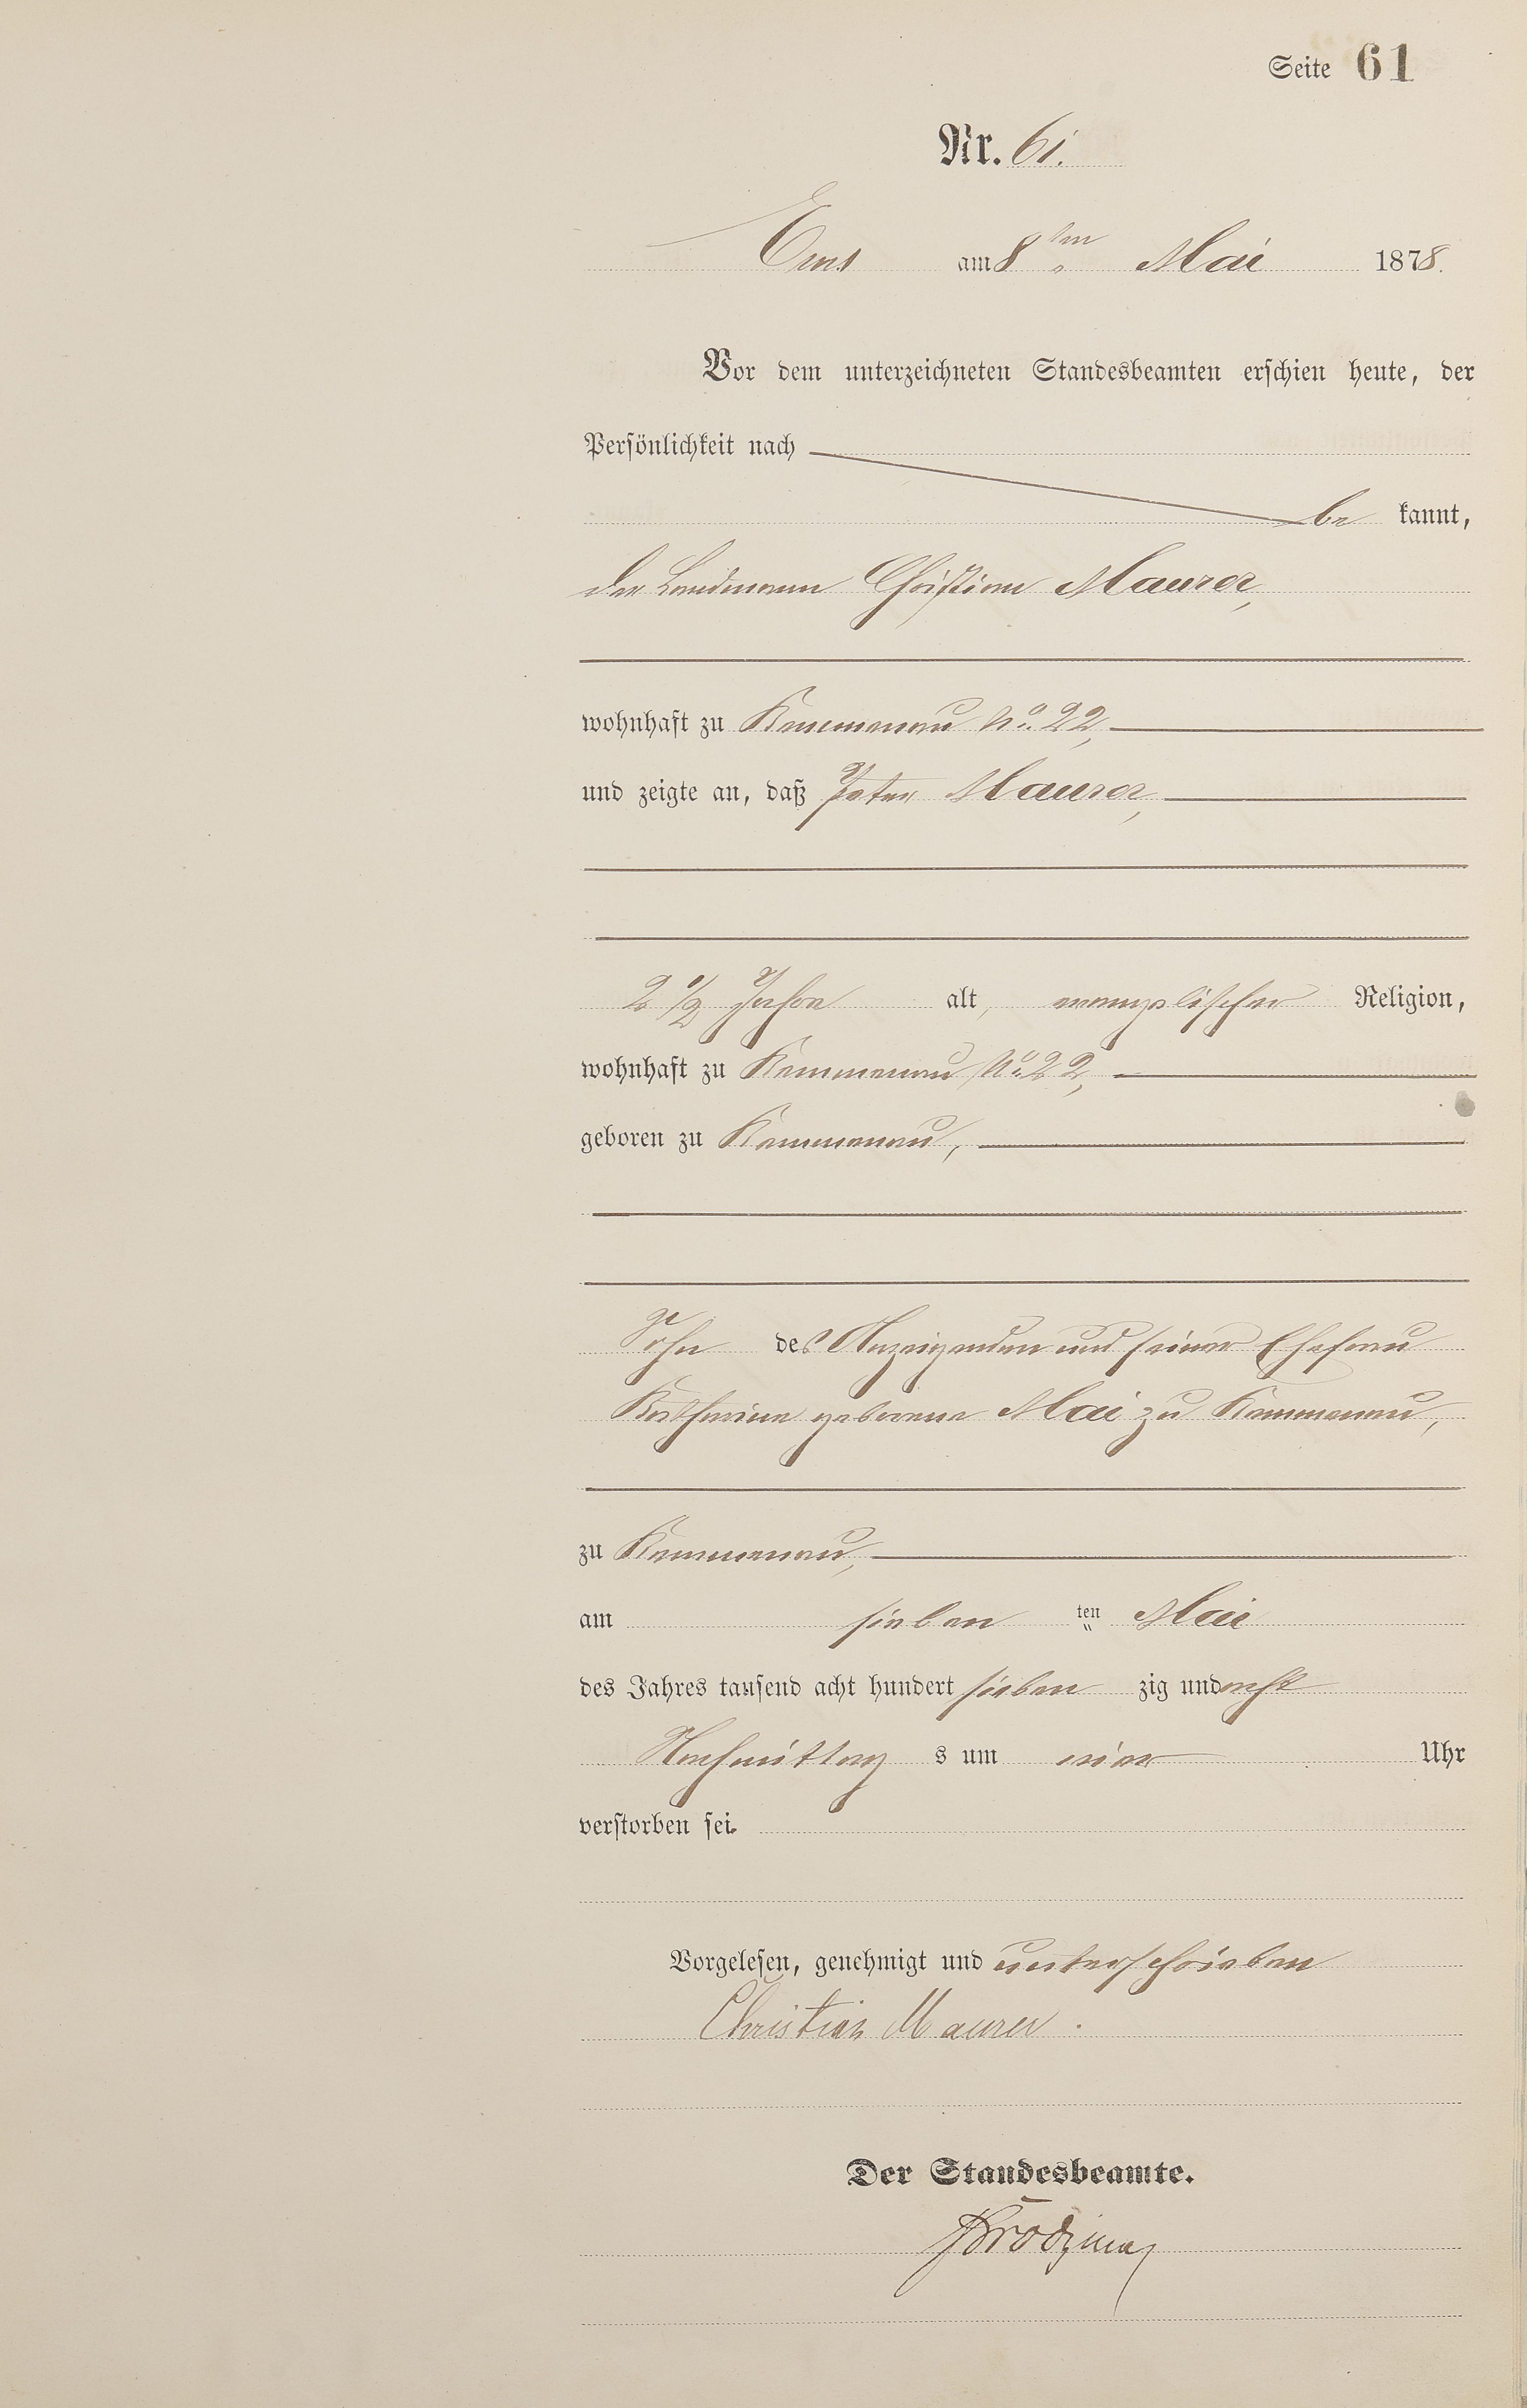 Seite 61
Nr. 61.
Ems am 8ten Mai 1878.
Vor dem unterzeichneten Standesbeamten erschien heute, der
Persönlichkeit nach
be kannt,
der Landmann Christian Maurer,
wohnhaft zu Kemmenau No. 22,
und zeigte an, daß Peter Maurer,
2 1/2 Jahre alt, evangelischer Religion,
wohnhaft zu Kemmenau No. 22,
geboren zu Kemmenau,
Sohn des Anzeigenden und seiner Ehefrau
Katharine geborene Mai zu Kemmenau,
zu Kemmenau,
am sieben ten Mai
des Jahres tausend acht hundert sieben zig und acht
Nachmittag s um vier Uhr
verstorben sei.
Vorgelesen, genehmigt und unterschrieben
Christian Maurer.
Der Standesbeamte.